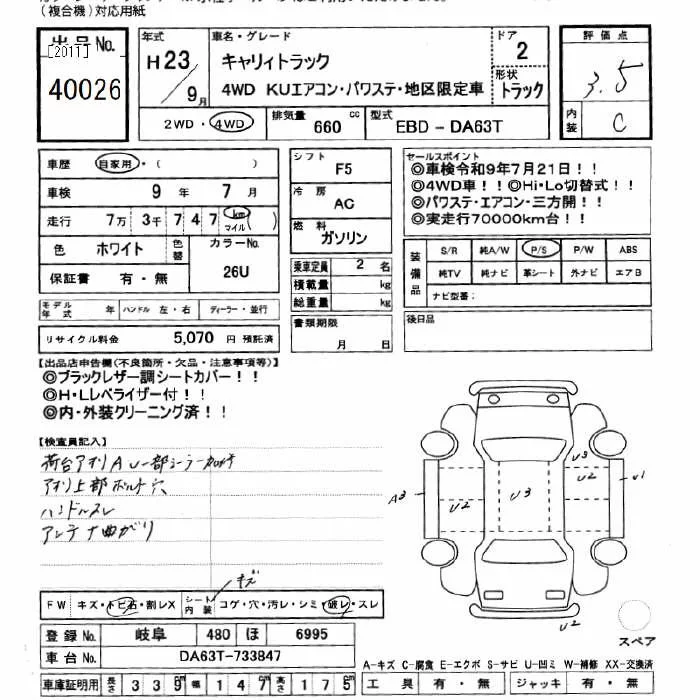 (複合機)対応用紙
出品No. [2011] 40026
年式 H23/9月
車名・グレード キャリィトラック
4WD KUエアコン・パワステ・地区限定車
ドア 2
形状 トラック
評価点 3.5
内装 C
2WD・4WD 排気量 660 cc 型式 EBD-DA63T
車歴 自家用・( )
車検 9年 7月
走行 7万 3千 7 4 7 km マイル ( )
色 ホワイト 色替 カラーNo. 26U
保証書 有・無
モデル年式 年 ハンドル 左・右 ディーラー・並行
リサイクル料金 5,070 円 預託済
シフト F5
冷房 AC
燃料 ガソリン
乗車定員 2 名
積載量 kg
総重量 kg
書類期限 月 日
セールスポイント
◎車検令和9年7月21日!!
◎4WD車!!◎Hi・Lo切替式!!
◎パワステ・エアコン・三方開!!
◎実走行70000km台!!
装備品 S/R 純A/W P/S P/W ABS
純TV 純ナビ 革シート 外ナビ エアB
ナビ型番:
後日品
【出品店申告欄(不良箇所・欠品・注意事項等)】
◎ブラックレザー調シートカバー!!
◎H・Lレベライザー付!!
◎内・外装クリーニング済!!
【検査員記入】
荷台アオリAU一部シーラー
アオリ上部ボルト穴
ハンドルスレ
アンテナ曲がり
A3 U2 U3 U3 U2 U1 U2
スペア
キズ
FW キズ・トビ石・割レX シート内装 コゲ・穴・汚レ・シミ・破レ・スレ
登録No. 岐阜 480 ほ 6995
車台No. DA63T-733847
A-キズ C-腐食 E-エクボ S-サビ U-凹ミ W-補修 XX-交換済
車庫証明用 長さ 3 3 9cm 幅 1 4 7cm 高さ 1 7 5cm
工具 有・無 ジャッキ 有・無